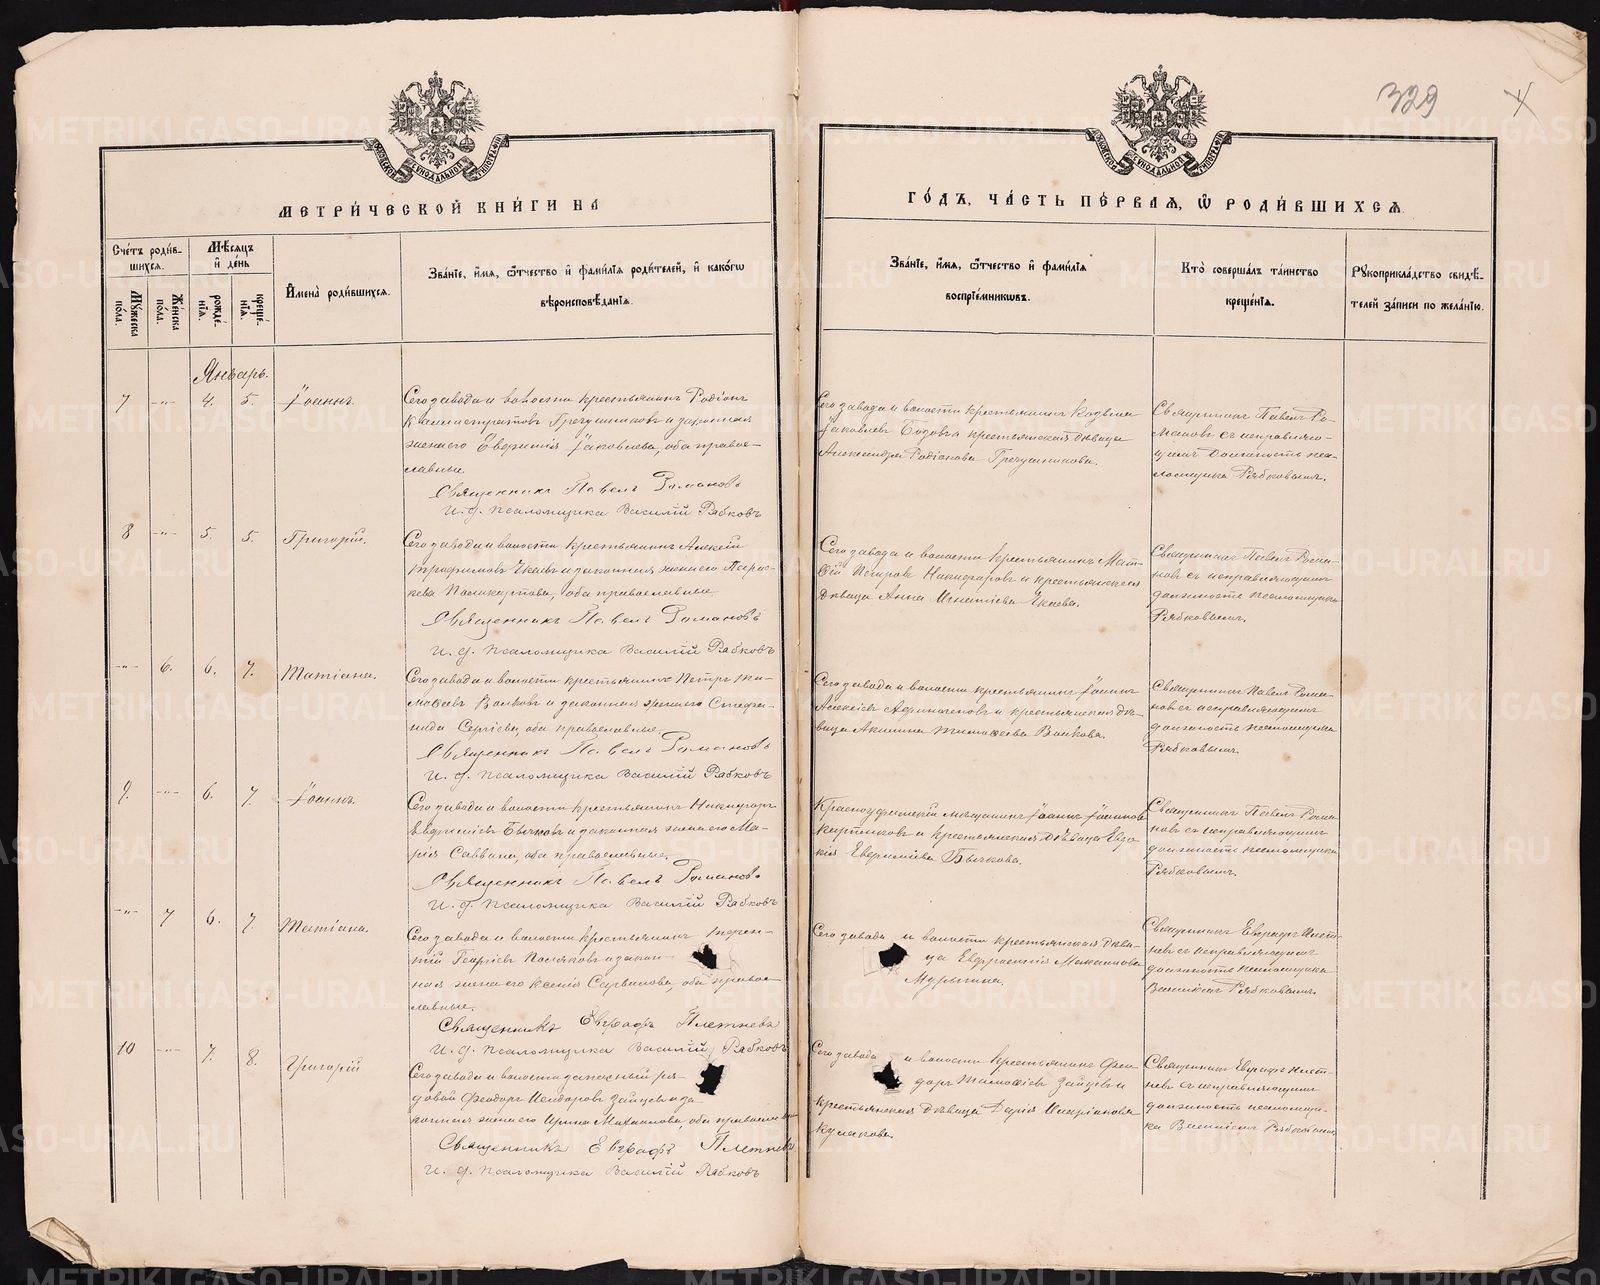 329
МЕТРИ́ЧЕСКОЙ КНИ́ГИ НА
ГО́ДЪ, ЧА́СТЬ ПЕ́РВАЯ, Ѡ РОДИ́ВШИХСЯ.
Сче́тъ роди́в-
шихся.
Му́жеска по́ла.
Же́нска по́ла.
Мѣ́сяцъ
и де́нь
рожде́-
нїя.
креще́-
нїя.
И́мена роди́вшихся.
Зва́нїе, и́мя, ѻ́тчество и фами́лїя роди́телей, и како́гѡ
вѣроисповѣ́данїя.
Зва́нїе, и́мя, ѻ́тчество и фами́лїя
воспрїе́мниковъ.
Кто̀ соверша́лъ та́инство
креще́нїя.
Рꙋкоприкла́дство свидѣ́-
телей за́писи по жела́нїю.
Январь.
7 -"- 4. 5. Іоаннъ.
Сего завода и волости крестьянинъ Родіонъ
Каллистратовъ Гречушниковъ и законная
жена его Евгенія Іаковлева, оба право-
славные.
Священникъ Павелъ Романовъ
И. д. псаломщика Василій Рябковъ
Сего завода и волости крестьянинъ Козьма
Іаковлевъ и крестьянская дѣвица
Александра Родіонова Гречушникова.
Священникъ Павелъ Ро-
мановъ съ исправляю-
щимъ должность пса-
ломщика Рябковымъ.
8 -"- 5. 5. Григорій.
Сего завода и волости крестьянинъ Алексій
Трофимовъ Чкаевъ и законная жена его Парас-
кева Поликарпова, оба православные
Священникъ Павелъ Романовъ
И. д. псаломщика Василій Рябковъ
Сего завода и волости крестьянинъ Мат-
ѳій Петровъ Никифоровъ и крестьянская
дѣвица Анна Игнатіева Чкаева.
Священникъ Павелъ Рома-
новъ съ исправляющимъ
должность псаломщика
Рябковымъ.
-"- 6. 6. 7. Татіана.
Сего завода и волости крестьянинъ Петръ Ти-
моѳеевъ Волковъ и законная жена его Стефа-
нида Сергіева, оба православные.
Священникъ Павелъ Романовъ
И. д. псаломщика Василій Рябковъ
Сего завода и волости крестьянинъ Іоаннъ
Алексіевъ и крестьянская дѣ-
вица Акилина Тимоѳеева Волкова.
Священникъ Павелъ Рома-
новъ съ исправляющимъ
должность псаломщика
Рябковымъ.
9. -"- 6. 7. Іоаннъ.
Сего завода и волости крестьянинъ Никифоръ
Бычковъ и законная жена его Ма-
рія Саввина, оба православные.
Священникъ Павелъ Романовъ
И. д. псаломщика Василій Рябковъ
Красноуфимскій мѣщанинъ Іоаннъ Іоанновъ
и крестьянская дѣвица Евдо-
кія Бычкова.
Священникъ Павелъ Рома-
новъ съ исправляющимъ
должность псаломщика
Рябковымъ.
-"- 7 6. 7. Татіана.
Сего завода и волости крестьянинъ Терен-
тій Георгіевъ и закон-
ная жена его Ксенія, оба право-
славные.
Священникъ Евграфъ Плетневъ
И. д. псаломщика Василій Рябковъ
Сего завода и волости крестьянская дѣви-
ца Евфросинія Максимова
Мурзина.
Священникъ Евграфъ Плет-
невъ съ исправляющимъ
должность псаломщика
Василіемъ Рябковымъ.
10 -"- 7. 8. Григорій
Сего завода и волости запасный ря-
довой Ѳеодоръ Исидоровъ Зайцевъ и за-
конная жена его Ирина Михайлова, оба православные
Священникъ Евграфъ Плетневъ
И. д. псаломщика Василій Рябковъ
Сего завода и волости крестьянинъ Ѳео-
доръ Тимоѳіевъ Зайцевъ и
крестьянская дѣвица Дарія
Кулакова.
Священникъ Евграфъ Плет-
невъ съ исправляющимъ
должность псаломщи-
ка Василіемъ Рябковымъ
METRIKI.GASO-URAL.RU